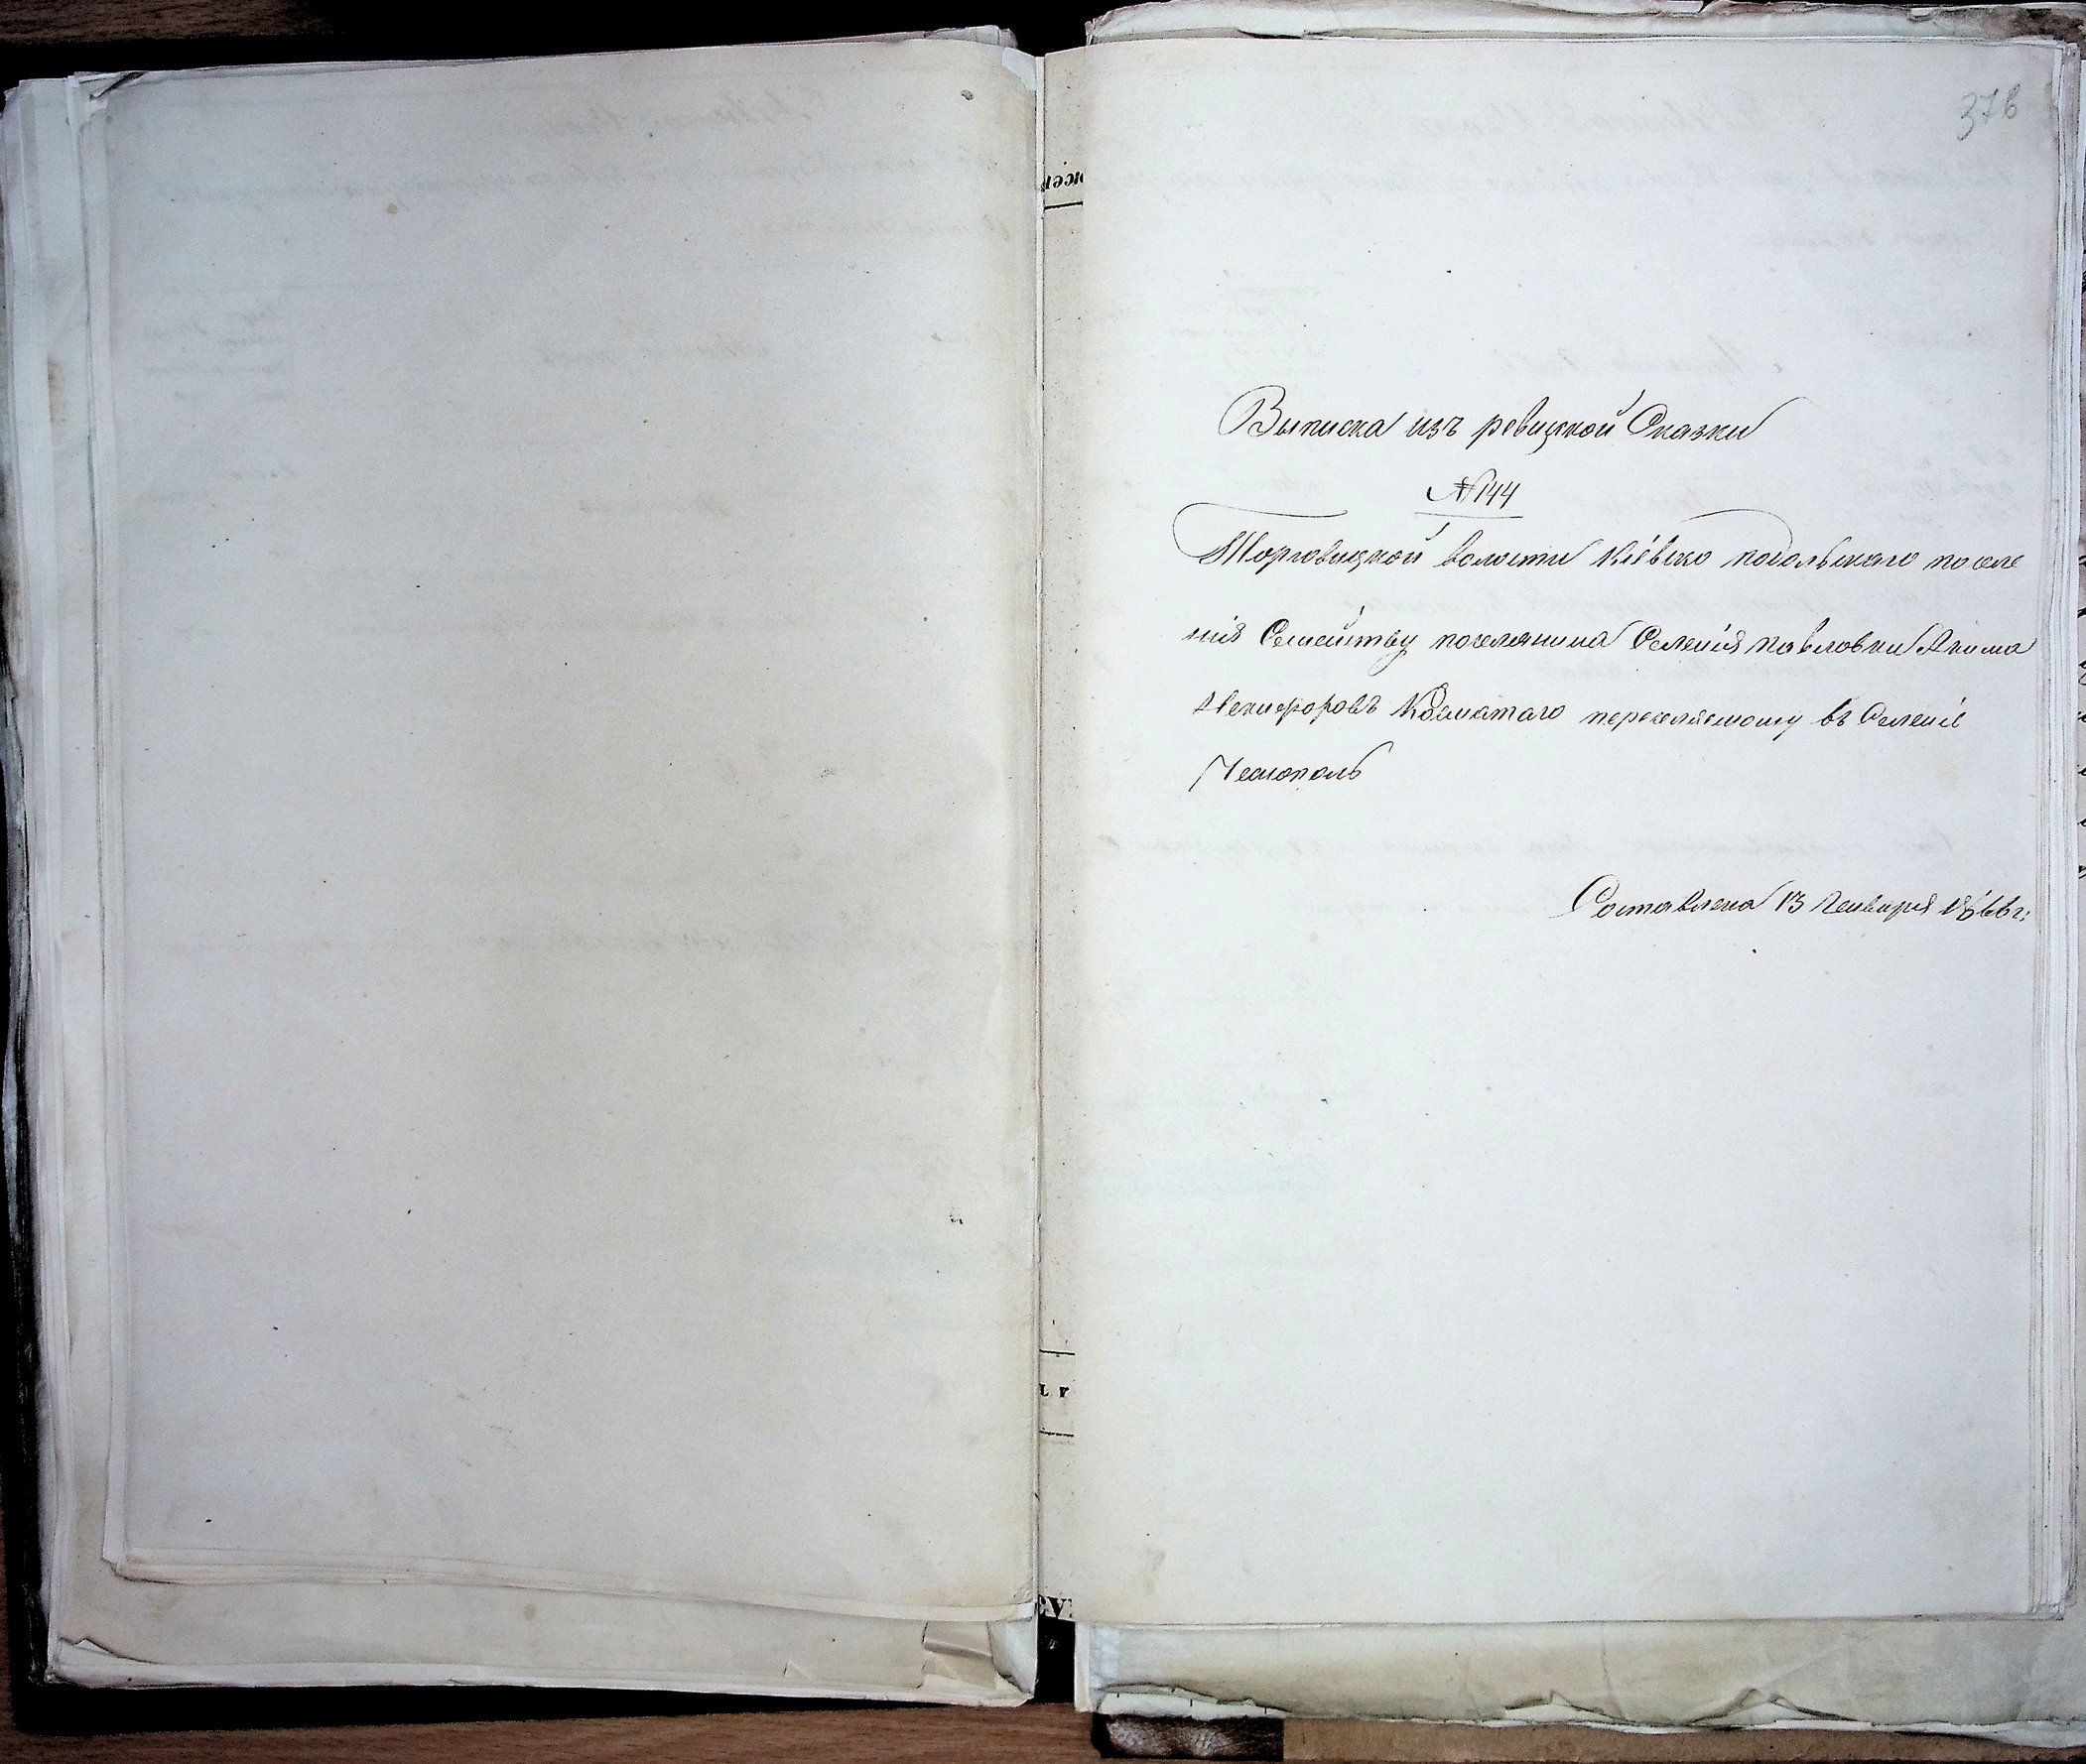 376
Выписка изъ ревизкой Сказки
№ 144
Торговицкой волости Кіевско подольскаго поселе
нія Семейству поселянина Селенія Павловки Якима
Некифоровъ Косматаго переселяемому въ Селеніе
Составлена 13 Генваря 1866 г: